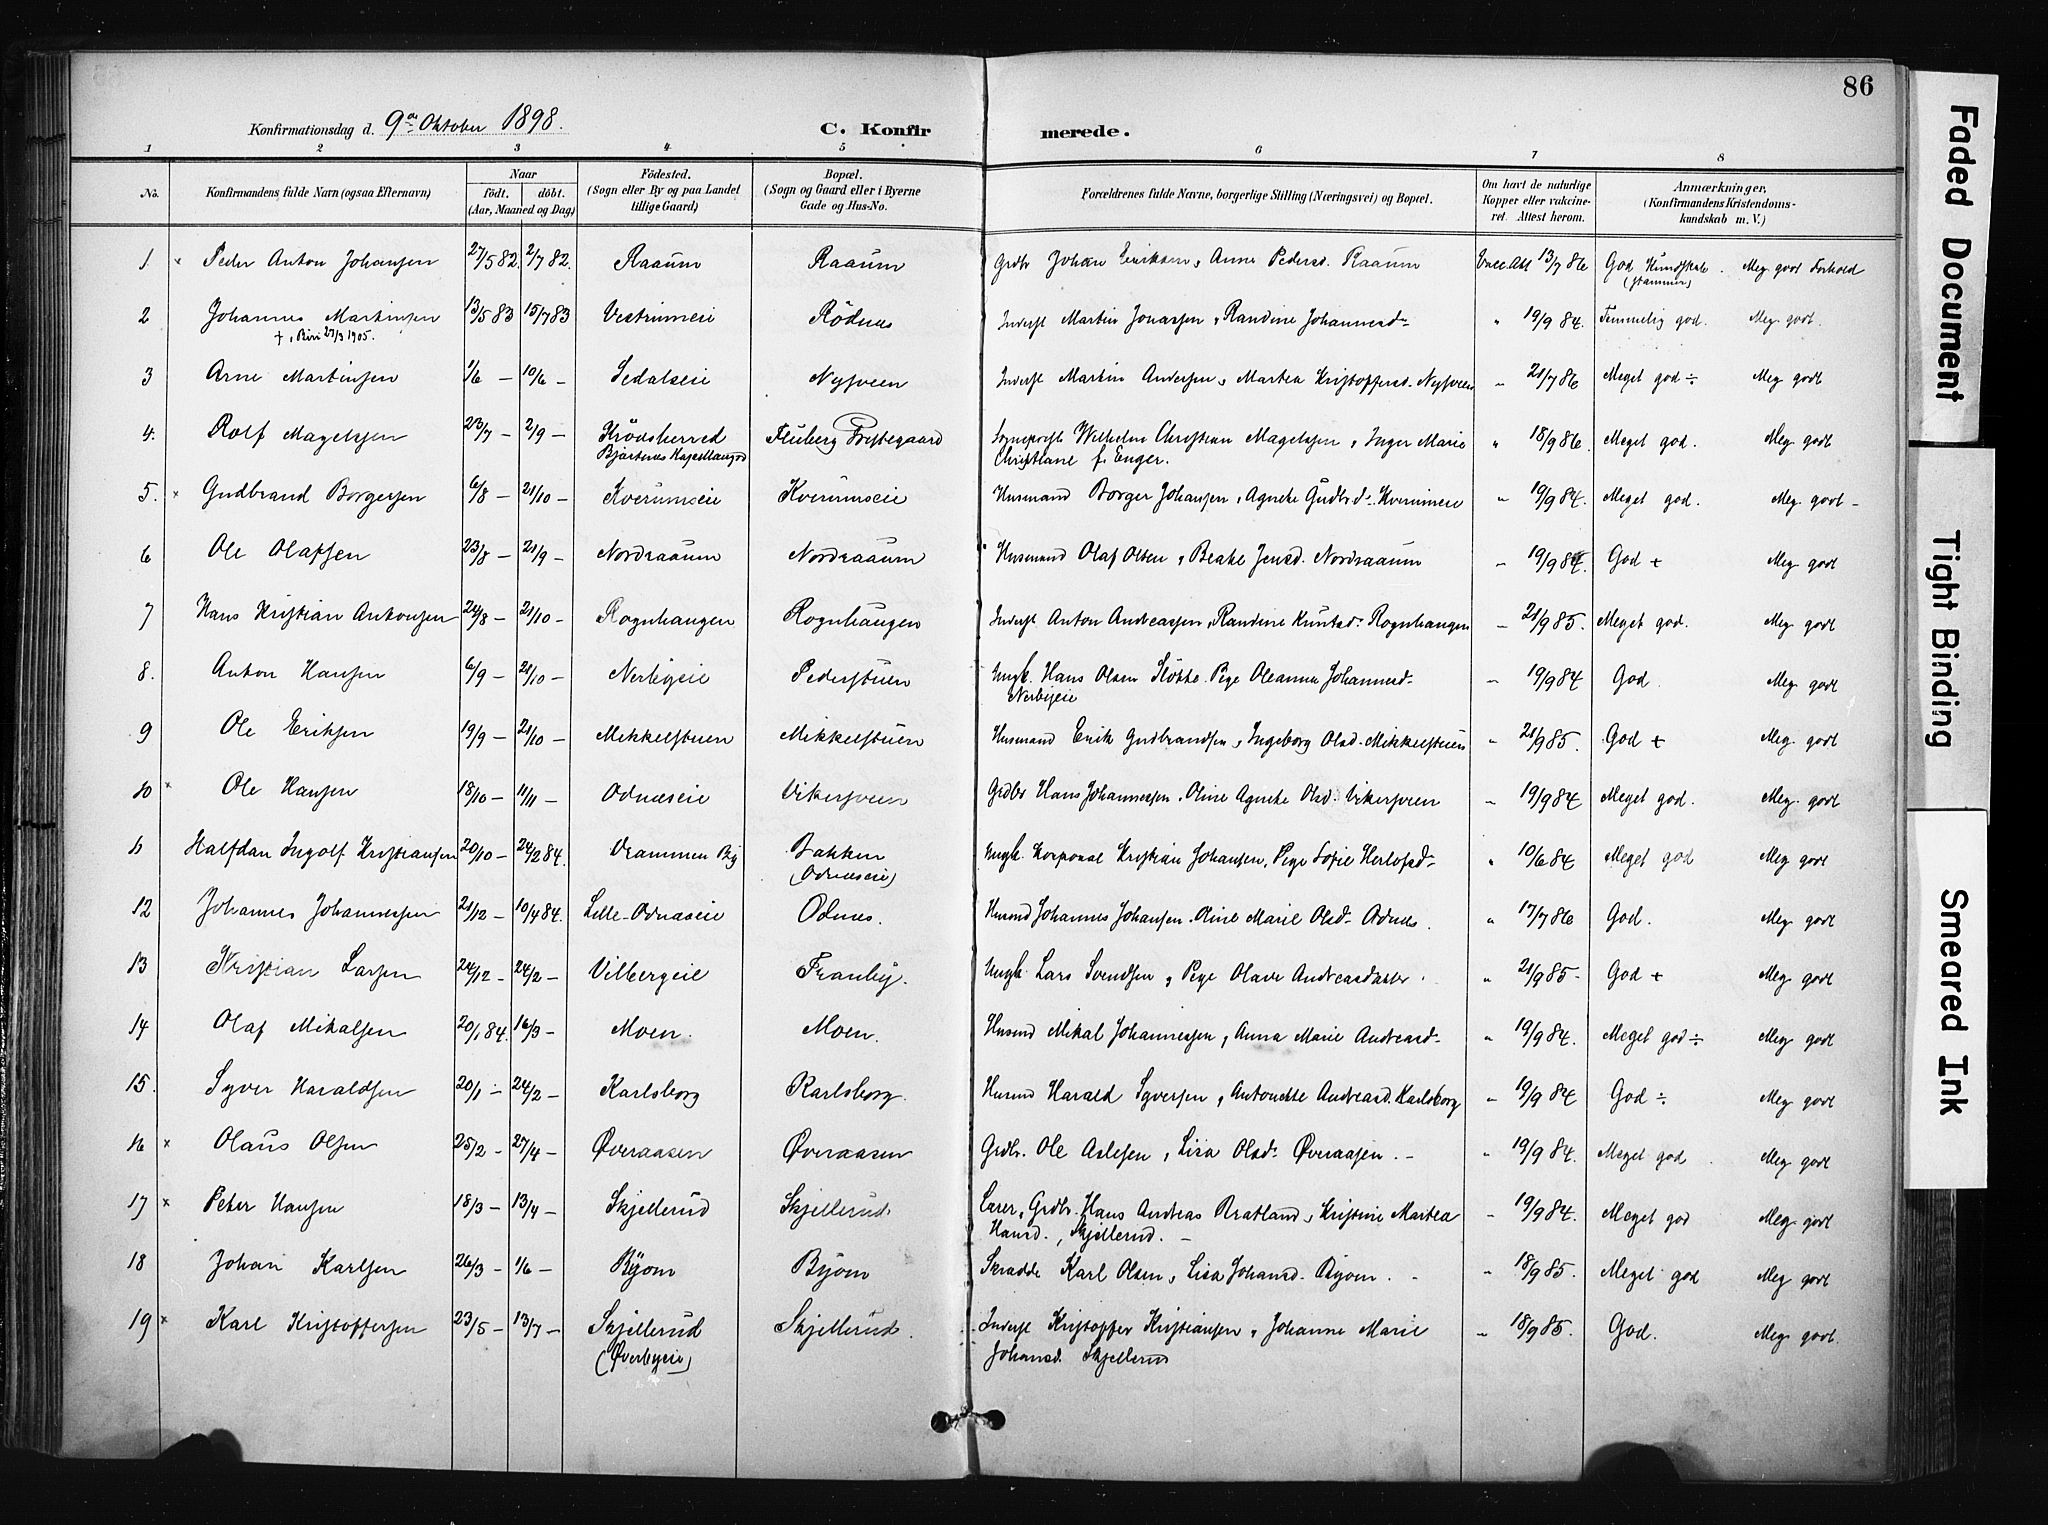 86
Konfirmationsdag d. 9de Oktober 1898. C. Konfirmerede.
1 2 3 4 5 6 7 8
No. Konfirmandens fulde Navn (ogsaa Efternavn) Naar født. døbt. (Aar, Maaned og Dag) Fødested. (Sogn eller By og paa Landet tillige Gaard) Bopæl. (Sogn og Gaard eller i Byerne Gade og Hus-No. Forældrenes fulde Navne, borgerlige Stilling (Næringsvei) og Bopæl. Om havt de naturlige Kopper eller vakcineret. Attest herom. Anmærkninger, (Konfirmandens Kristendomskundskab m. V.)
1 × Peder Anton Johansen 27/5 82. 2/7 82. Raaum Raaum Grdbr Johan Eriksen, Anne Pedersd. Raaum Vacc. Att 13/7 86 God Kundskab. (stammer) Meg godt Forhold
2 Johannes Martinsen 13/5 83 15/7 83 Vestrumeie Rödnes Inderst Martin Jonassen, Randine Johannesd. " 19/9 84. Temmelig god. Meg godt.
+, Biri 23/3 1905.
3 Arne Martinsen 1/6 — 10/6 — Sedalseie Nysveen Inderst Martin Andersen, Martea Kristoffersd. Nysveen " 21/7 86 Meget god ÷ Meg godt
4. Rolf Magelssen 23/7 — 2/9 — Krödsherred Fluberg Præstegaard Sognepræst Wilhelm Christian Magelssen, Inger Marie " 18/9 86. Meget god. Meg godt
Bjertnes Kapellangrd Christiane f. Enger.
5. × Gudbrand Borgersen 6/8 — 21/10 — Kverumseie Kverumseie Husmand Borger Johansen, Agnethe Gudbrd. Kverumseie " 19/9 84. Meget god. Meg. godt —
6 Ole Olafsen 23/8 — 21/9 — Nordraaum Nordraaum Husmand Olaf Olsen, Beate Jensd. Nordraaum " 19/9 84. God + Meg godt
7 Hans Kristian Antonsen 24/8 — 21/10 — Rognhaugen Rognhaugen Inderst Anton Andreassen, Randine Knutsd. Rognhaugen " 21/9 85. Meget god. Meg godt
8. Anton Hansen 6/9 — 21/10 — Nerbyeie Pederstuen Ungk. Hans Olsen Slötte. Pige Oleanna Johannesd. " 19/9 84 God. Meg godt
Nerbyeie
9 Ole Eriksen 19/9 — 21/10 — Mikkelstuen Mikkelstuen Husmand Erik Gudbrandsen, Ingeborg Olsd. Mikkelstuen " 21/9 85. God + Meg. godt
10 × Ole Hansen 18/10 — 11/11 — Odnæseie Vikersveen Grdbr Hans Johannessen. Oline Agnethe Olsd. Vikersveen " 19/9 84 Meget god. Meg. godt
11 Halfdan Ingolf Kristiansen 20/10 — 24/2 84. Drammen By Bakken Ungk. Korporal Kristian Johansen, Pige Sofie Herlofsd. " 10/6 84 Meget god Meg. godt
(Odnæseie)
12 Johannes Johannessen 21/12 — 10/4 84. Lille-Odnæseie Odnes. Husmd Johannes Johansen. Oline Marie Olsd. Odnes. " 17/7 86 God. Meg. godt
13 Kristian Larsen 24/12 — 24/2 — Vilbergeie Franby. Ungk. Lars Svendsen, Pige Olave Andreasdatter. " 21/9 85. God + Meg godt
14 Olaf Mikalsen 20/1 84. 16/3 — Moen. Moen. Husmd Mikal Johannessen, Anna Marie Andreasd. " 19/9 84. Meget god ÷ Meg. godt
15. Syver Haraldsen 20/1 — 24/2 — Karlsborg Karlsborg. Husmd Harald Syversen, Antonette Andreasd. Karlsborg " 19/9 84 God ÷ Meg godt
16 × Olaus Olsen 25/2 — 27/4 — Øveraasen Øveraasen Grdbr. Ole Aslesen, Lisa Olsd. Øveraasen. — " 19/9 84. Meget god. Meg godt
17 × Peter Hansen 18/3 — 13/4 — Skjellerud Skjellerud Lærer, Grdbr. Hans Andreas Bratland, Kristine Martea " 19/9 84. Meget god Meg godt
Hansd., Skjellerud. —
18 Johan Karlsen 26/3 — 1/6 — Byom Byom Skradde Karl Olsen, Lisa Johansd. Byom. " 18/9 85. Meget god Meg godt
19 × Karl Kristoffersen 23/5 — 13/7 — Skjellerud Skjellerud. Inderst Kristoffer Kristiansen, Johanne Marie " 18/9 85. God. Meg godt.
(Øverbyeie) Johansd. Skjellerud
Faded Document
Tight Binding
Smeared Ink